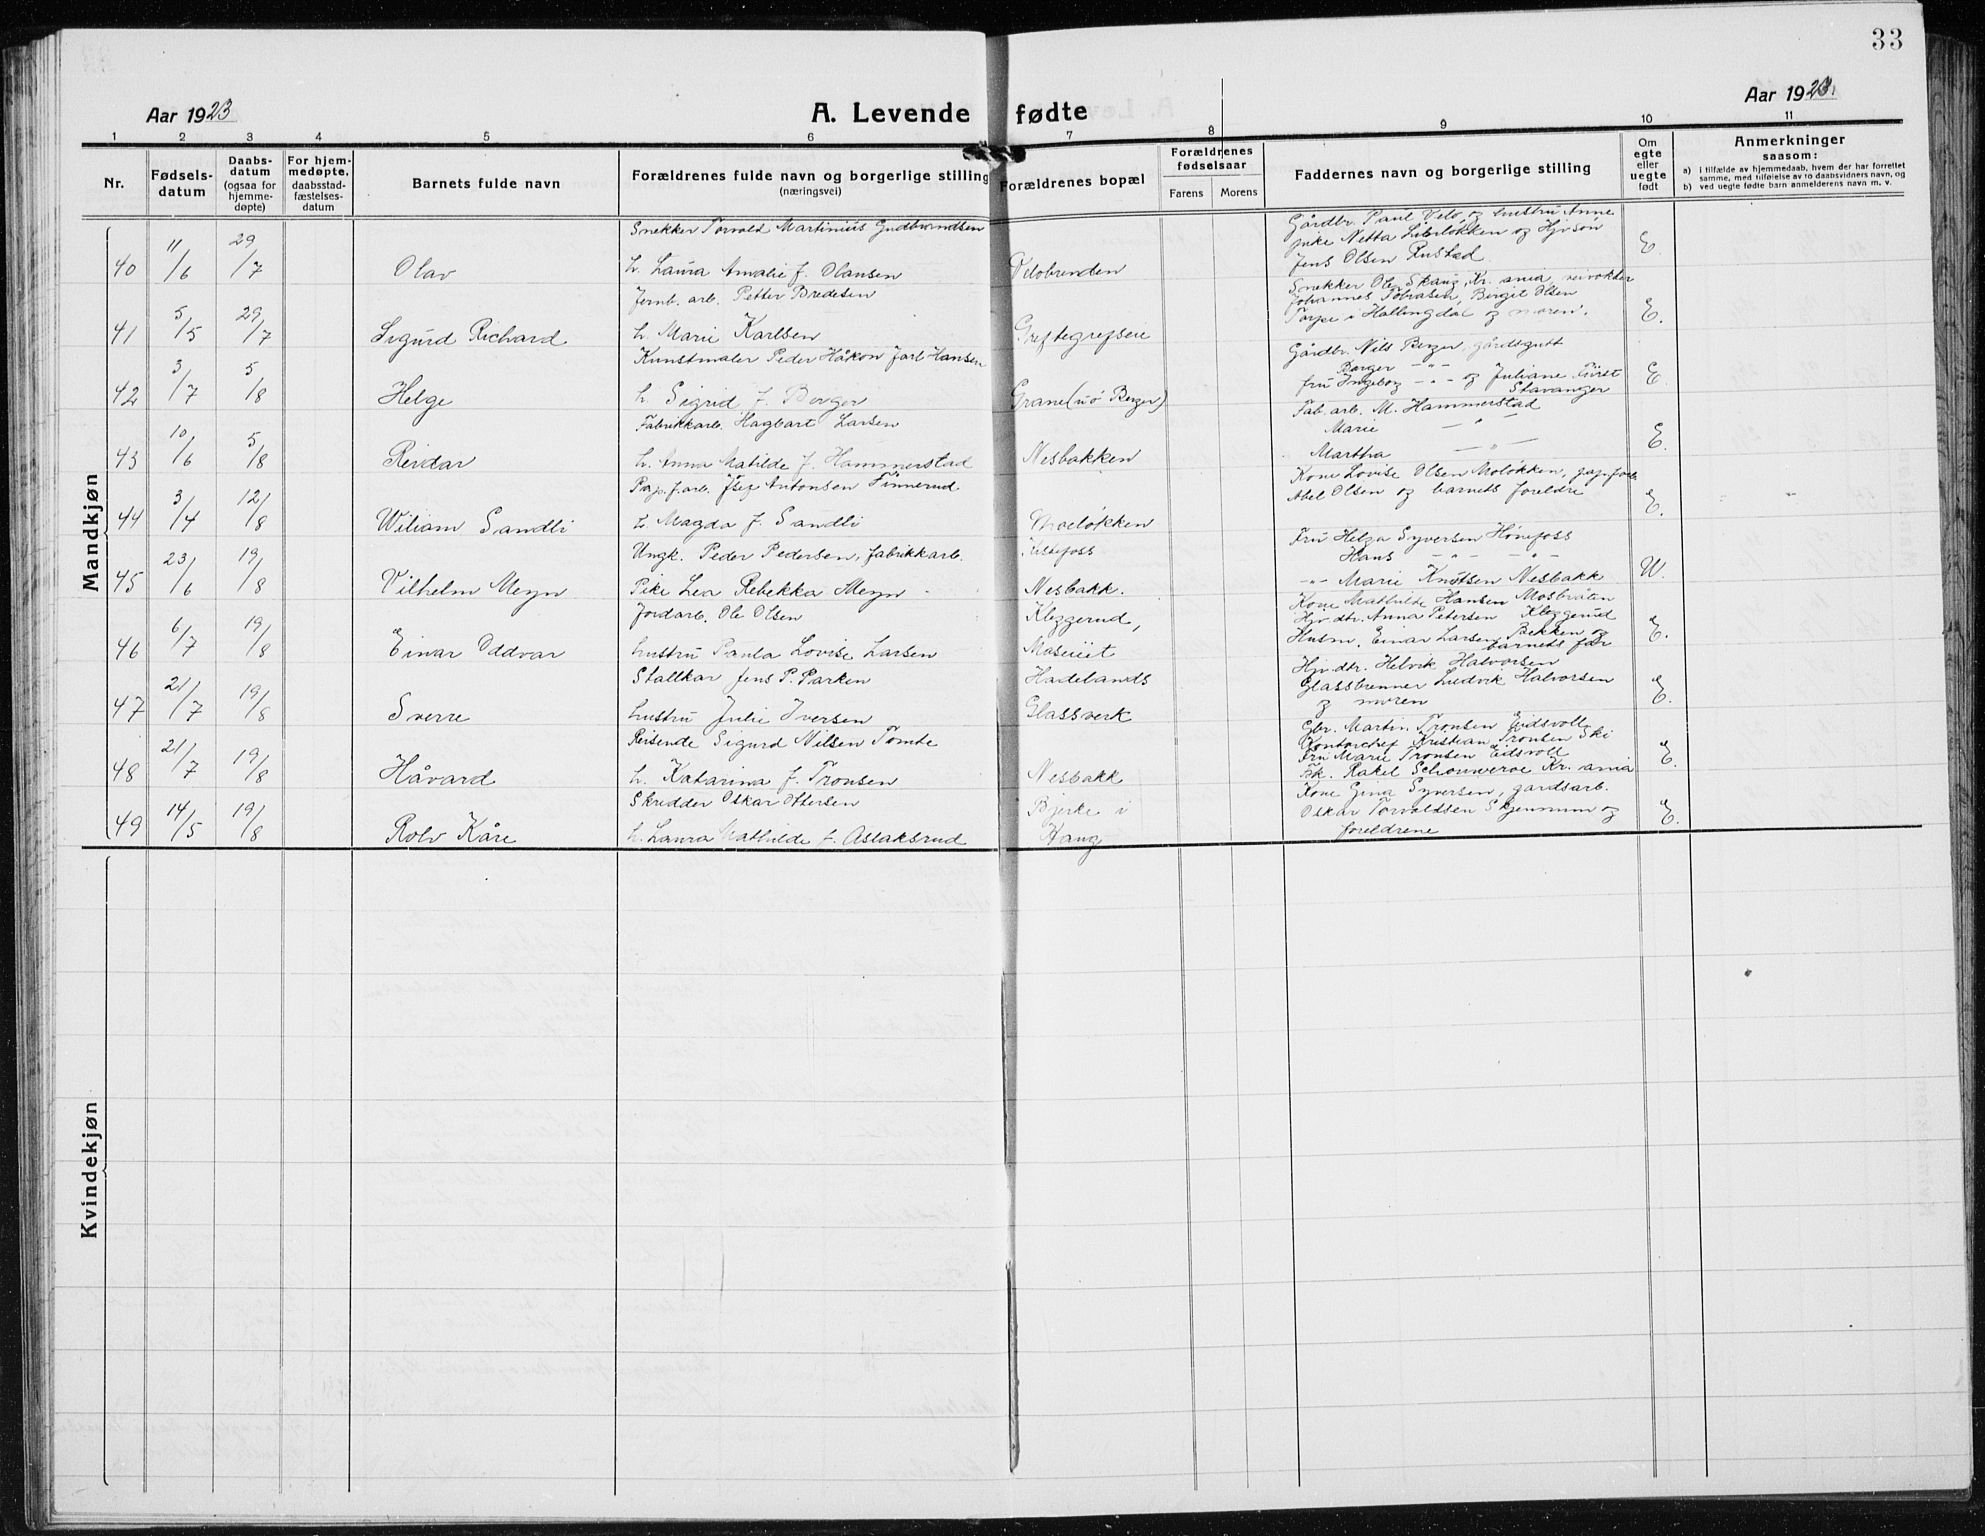 33
Aar 1923
A. Levende fødte
Aar 1923.
1 2 3 4 5 6 7 8 9 10 11
Nr.
Fødsels-
datum
Daabs-
datum
(ogsaa for
hjemme-
døpte)
For hjem-
medøpte,
daabsstad-
fæstelses-
datum
Barnets fulde navn
Forældrenes fulde navn og borgerlige stilling
(næringsvei)
Forældrenes bopæl
Forældrenes
fødselsaar
Farens Morens
Faddernes navn og borgerlige stilling
Om
egte
eller
uegte
født
Anmerkninger
saasom:
a) i tilfælde av hjemmedaab, hvem der har forrettet
samme, med tilføielse av to daabsvidners navn, og
b) ved uegte fødte barn anmelderens navn m. v.
Mandkjøn
40 11/6 29/7 Olav
Snekker Torvald Martinius Gudbrandsen
h. Laura Amalie f. Olausen
Velobrenden
Gårdbr. Paul Velo og hustru Anne
pike Netta og Hjv søn
Jens Olsen Rustad.
E.
41 5/5 29/7 Sigurd Richard
Jernb. arb. Petter Bredesen
h. Marie Karlsen
Greftegrefseie
Snekker Ole Skaug, Kr.ania
Johannes Birgit Olsen
Torpe i Hallingdal og moren.
E.
42 3/7 5/8 Helge
Kunstmaler Peder Håkon Jarl Hansen
h. Sigrid f. Berger
Grane (u/ø Berger)
Gårdbr. Nils Berger, gårdsgutt
Berger -"-
fru Ingeborg -"- og Juliane Fürst
Stavanger
E.
43 10/6 5/8 Reidar
Fabrikkarb. Hagbart Larsen
h. Anna Matilde f. Hammerstad
Nesbakken
Fab. arb. M. Hammerstad
Marie -"-
Martha -"-
E.
44 3/4 12/8 Wiliam Sandli
Pap.f.arb. Antonsen Finnerud
h. Magda f. Sandli
Moeløkken
Kone Lovise Olsen Moløkken, papfarb.
Abel Olsen og barnets foreldre
E.
45 23/6 19/8 Vilhelm Meyn
Ungk. Peder Pedersen, fabrikkarb.
Pike Lea Rebekka Meyn
Kistefoss
Nesbakk.
Fru Helga Syversen Hønefoss
Hans -"- -"-
-"- Marie Knutsen Nesbakk
U.
46 6/7 19/8 Einar Oddvar
Jordarb. Ole Olsen
hustru Paula Lovise Larsen
Kleggerud,
Moseiet
Kone Mathilde Hansen Mosbråten
Hjv. dtr. Anna Petersen Kleggerud
Husm. Einar Larsen Bekken og
barnets far
E.
47 21/7 19/8 Sverre
Stallkar Jens P. Parken
hustru Julie Iversen
Hadelands
Glassverk
Hjv. dtr. Helvik Halvorsen
Glassbrenner Ludvik Halvorsen
og moren
E.
48 21/7 19/8 Håvard
Reisende Sigurd Nilsen Tomte
h. Katarina f. Tronsen
Nesbakk
Gbr. Martin Tronsen Eidsvoll
Kontorchef Kristian Tronsen Ski
Fru Marie Tronsen Eidsvoll
Frk. Rakel Schouweroe Kr.ania
E.
49 14/5 19/8 Rolv Kåre
Skredder Oskar Ottersen
h. Laura Mathilde f. Aslaksrud
Bjerke i
Haug
Kone Gina Syversen, gardsarb.
Oskar Torvaldsen Skjennum og
foreldrene
E.
Kvindekjøn